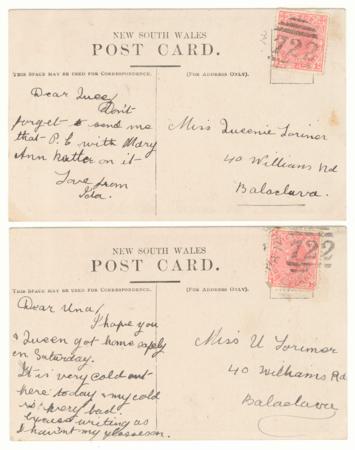 NEW SOUTH WALES
POST CARD.
THIS SPACE MAY BE USED FOR CORRESPONDENCE.
(FOR ADDRESS ONLY).
722
Dear Quee,
Don't
forget to send me
that P.C with Mary
Ann on it
Love from
Miss Queenie Lorimer
40 Williams Rd
Balaclava.
NEW SOUTH WALES
POST CARD.
THIS SPACE MAY BE USED FOR CORRESPONDENCE.
(FOR ADDRESS ONLY).
722
Dear Una,
I hope you
& Queen got home safely
on Saturday.
It is very cold out
here today & my cold
is very bad.
Excuse writing as
I havn't my glasses on.
Miss U Lorimer
40 Williams Rd
Balaclava